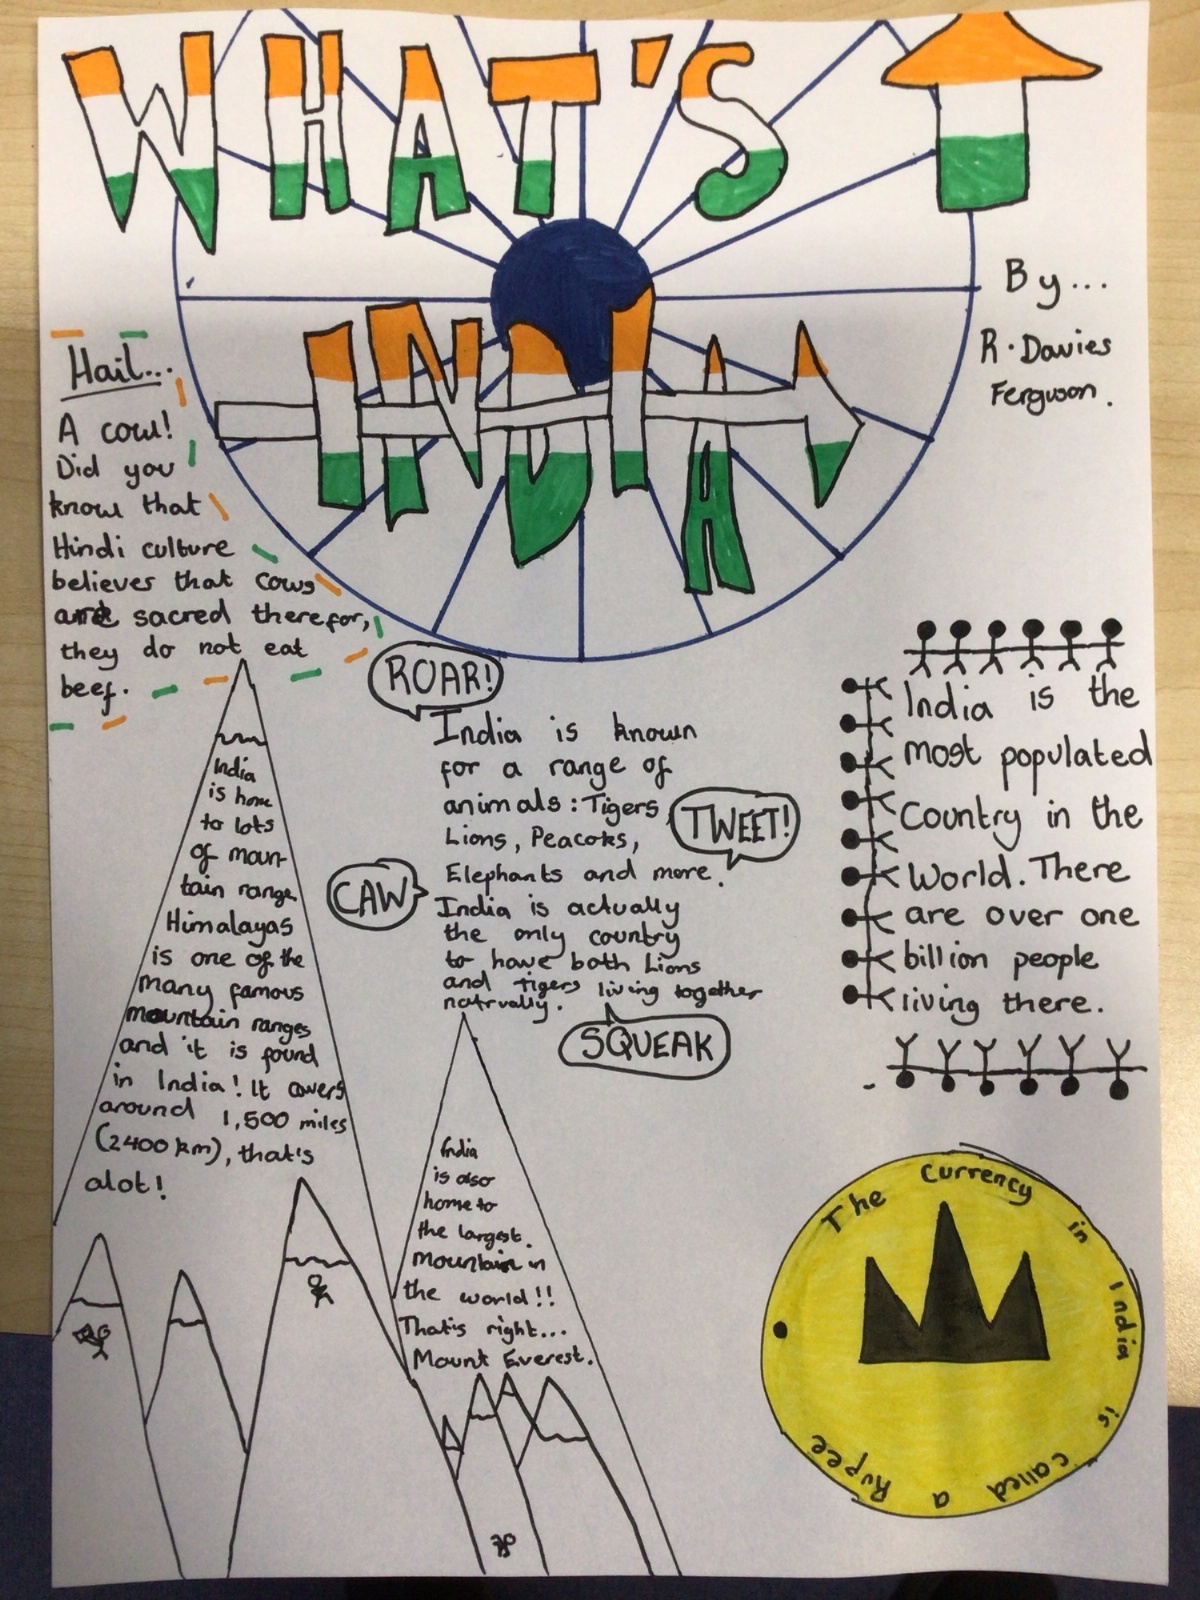 WHAT'S
INDIA
By...
R. Davies
Ferguson.
Hail...
A cow!
Did you
know that
Hindi culture
believes that cows
are sacred therefor,
they do not eat
beef.
ROAR!
India is known
for a range of
animals: Tigers
Lions, Peacoks,
Elephants and more.
India is actually
the only country
to have both Lions
and tigers living together
natrually.
TWEET!
CAW
SQUEAK
India is the
most populated
Country in the
World. There
are over one
billion people
living there.
India
is home
to lots
of moun-
tain range
Himalayas
is one of the
many famous
mountain ranges
and it is found
in India! It covers
around 1,500 miles
(2400 km), that's
alot!
India
is also
home to
the largest
mountain in
the world!!
That's right...
Mount Everest.
The currency in India is called a Rupee